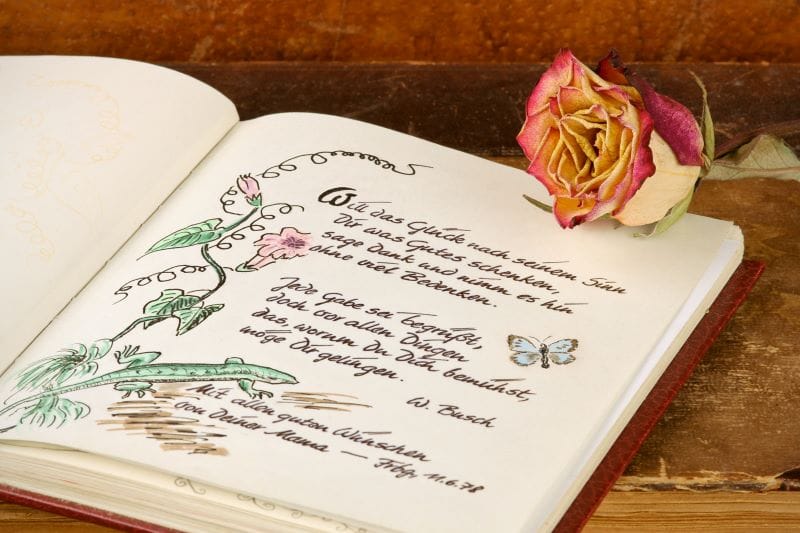 Will das Glück nach seinem Sinn
Dir was Gutes schenken,
sage Dank und nimm es hin
ohne viel Bedenken.
Jede Gabe sei begrüßt,
doch vor allen Dingen
das, worum Du Dich bemühst,
möge Dir gelingen.
W. Busch
Mit allen guten Wünschen
von Deiner Mama — Frbg. 11.6.78